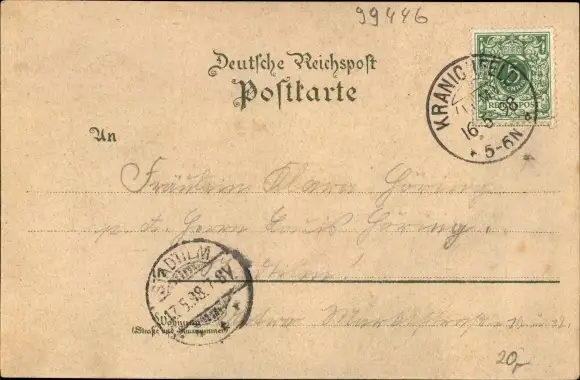 99446
Deutsche Reichspost
Postkarte
KRANICHFELD
16 5 98
5-6N
REICHSPOST
An
Fräulein Clara Höring
p. d. Herrn Louis Höring
STADTILM
17.5.98.7-8V
Wohnung
(Straße und Hausnummer)
20,-